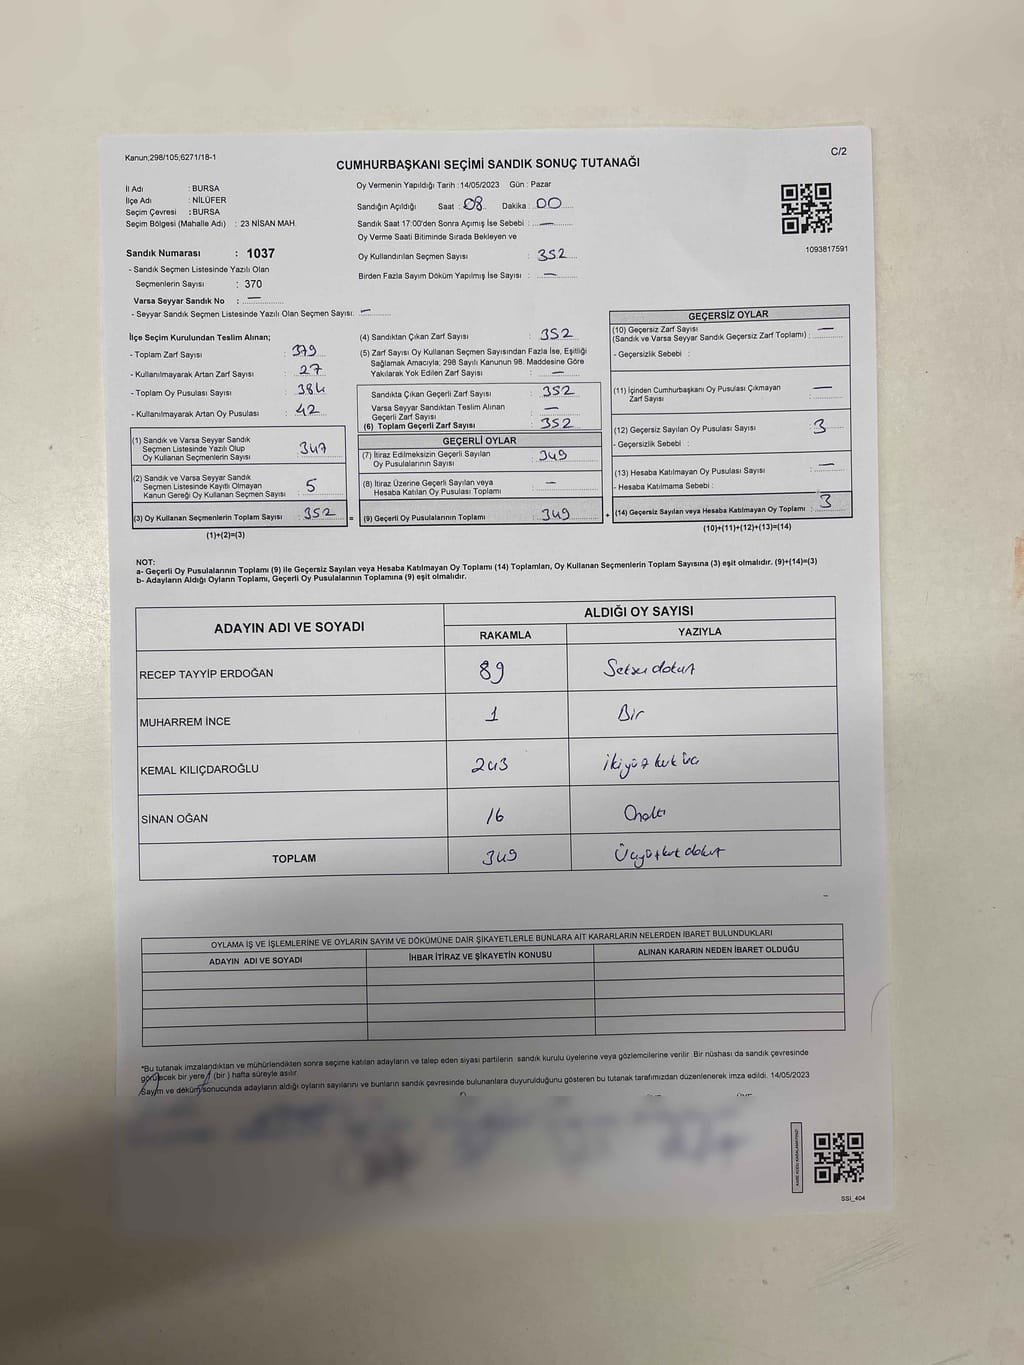 Kanun;298/105;6271/18-1
C/2
CUMHURBAŞKANI SEÇİMİ SANDIK SONUÇ TUTANAĞI
İl Adı : BURSA
İlçe Adı : NİLÜFER
Seçim Çevresi : BURSA
Seçim Bölgesi (Mahalle Adı) : 23 NİSAN MAH.
Sandık Numarası : 1037
- Sandık Seçmen Listesinde Yazılı Olan
Seçmenlerin Sayısı : 370
Varsa Seyyar Sandık No : —
- Seyyar Sandık Seçmen Listesinde Yazılı Olan Seçmen Sayısı: —
Oy Vermenin Yapıldığı Tarih : 14/05/2023 Gün : Pazar
Sandığın Açıldığı Saat : 08 Dakika : 00
Sandık Saat 17:00'den Sonra Açımış İse Sebebi : —
Oy Verme Saati Bitiminde Sırada Bekleyen ve
Oy Kullandırılan Seçmen Sayısı : 352
Birden Fazla Sayım Döküm Yapılmış İse Sayısı : —
1093817591
İlçe Seçim Kurulundan Teslim Alınan;
- Toplam Zarf Sayısı : 379
- Kullanılmayarak Artan Zarf Sayısı : 27
- Toplam Oy Pusulası Sayısı : 384
- Kullanılmayarak Artan Oy Pusulası : 42
(1) Sandık ve Varsa Seyyar Sandık
Seçmen Listesinde Yazılı Olup
Oy Kullanan Seçmenlerin Sayısı : 347
(2) Sandık ve Varsa Seyyar Sandık
Seçmen Listesinde Kayıtlı Olmayan
Kanun Gereği Oy Kullanan Seçmen Sayısı : 5
(3) Oy Kullanan Seçmenlerin Toplam Sayısı : 352
(1)+(2)=(3)
(4) Sandıktan Çıkan Zarf Sayısı : 352
(5) Zarf Sayısı Oy Kullanan Seçmen Sayısından Fazla İse, Eşitliği
Sağlamak Amacıyla; 298 Sayılı Kanunun 98. Maddesine Göre
Yakılarak Yok Edilen Zarf Sayısı : —
Sandıkta Çıkan Geçerli Zarf Sayısı : 352
Varsa Seyyar Sandıktan Teslim Alınan
Geçerli Zarf Sayısı : —
(6) Toplam Geçerli Zarf Sayısı : 352
GEÇERLİ OYLAR
(7) İtiraz Edilmeksizin Geçerli Sayılan
Oy Pusulalarının Sayısı : 349
(8) İtiraz Üzerine Geçerli Sayılan veya
Hesaba Katılan Oy Pusulası Toplamı : —
= (9) Geçerli Oy Pusulalarının Toplamı : 349
GEÇERSİZ OYLAR
(10) Geçersiz Zarf Sayısı
(Sandık ve Varsa Sandık Geçersiz Zarf Toplamı) : —
- Geçersizlik Sebebi :
(11) İçinden Cumhurbaşkanı Oy Pusulası Çıkmayan
Zarf Sayısı : —
(12) Geçersiz Sayılan Oy Pusulası Sayısı : 3
- Geçersizlik Sebebi :
(13) Hesaba Katılmayan Oy Pusulası Sayısı : —
- Hesaba Katılmama Sebebi :
+ (14) Geçersiz Sayılan veya Hesaba Katılmayan Oy Toplamı : 3
(10)+(11)+(12)+(13)=(14)
NOT:
a- Geçerli Oy Pusulalarının Toplamı (9) ile Geçersiz Sayılan veya Hesaba Katılmayan Oy Toplamı (14) Toplamları, Oy Kullanan Seçmenlerin Toplam Sayısına (3) eşit olmalıdır. (9)+(14)=(3)
b- Adayların Aldığı Oyların Toplamı, Geçerli Oy Pusulalarının Toplamına (9) eşit olmalıdır.
ADAYIN ADI VE SOYADI
ALDIĞI OY SAYISI
RAKAMLA YAZIYLA
RECEP TAYYİP ERDOĞAN 89 Seksen dokuz
MUHARREM İNCE 1 Bir
KEMAL KILIÇDAROĞLU 243 ikiyüz kırk üç
SİNAN OĞAN 16 Onaltı
TOPLAM 349 Üçyüzkırk dokuz
OYLAMA İŞ VE İŞLEMLERİNE VE OYLARIN SAYIM VE DÖKÜMÜNE DAİR ŞİKAYETLERLE BUNLARA AİT KARARLARIN NELERDEN İBARET BULUNDUKLARI
ADAYIN ADI VE SOYADI İHBAR İTİRAZ VE ŞİKAYETİN KONUSU ALINAN KARARIN NEDEN İBARET OLDUĞU
*Bu tutanak imzalandıktan ve mühürlendikten sonra seçime katılan adayların ve talep eden siyasi partilerin sandık kurulu üyelerine veya gözlemcilerine verilir. Bir nüshası da sandık çevresinde
görülecek bir yere 1 (bir) hafta süreyle asılır.
Sayım ve döküm sonucunda adayların aldığı oyların sayılarını ve bunların sandık çevresinde bulunanlara duyurulduğunu gösteren bu tutanak tarafımızdan düzenlenerek imza edildi. 14/05/2023
SSI_404